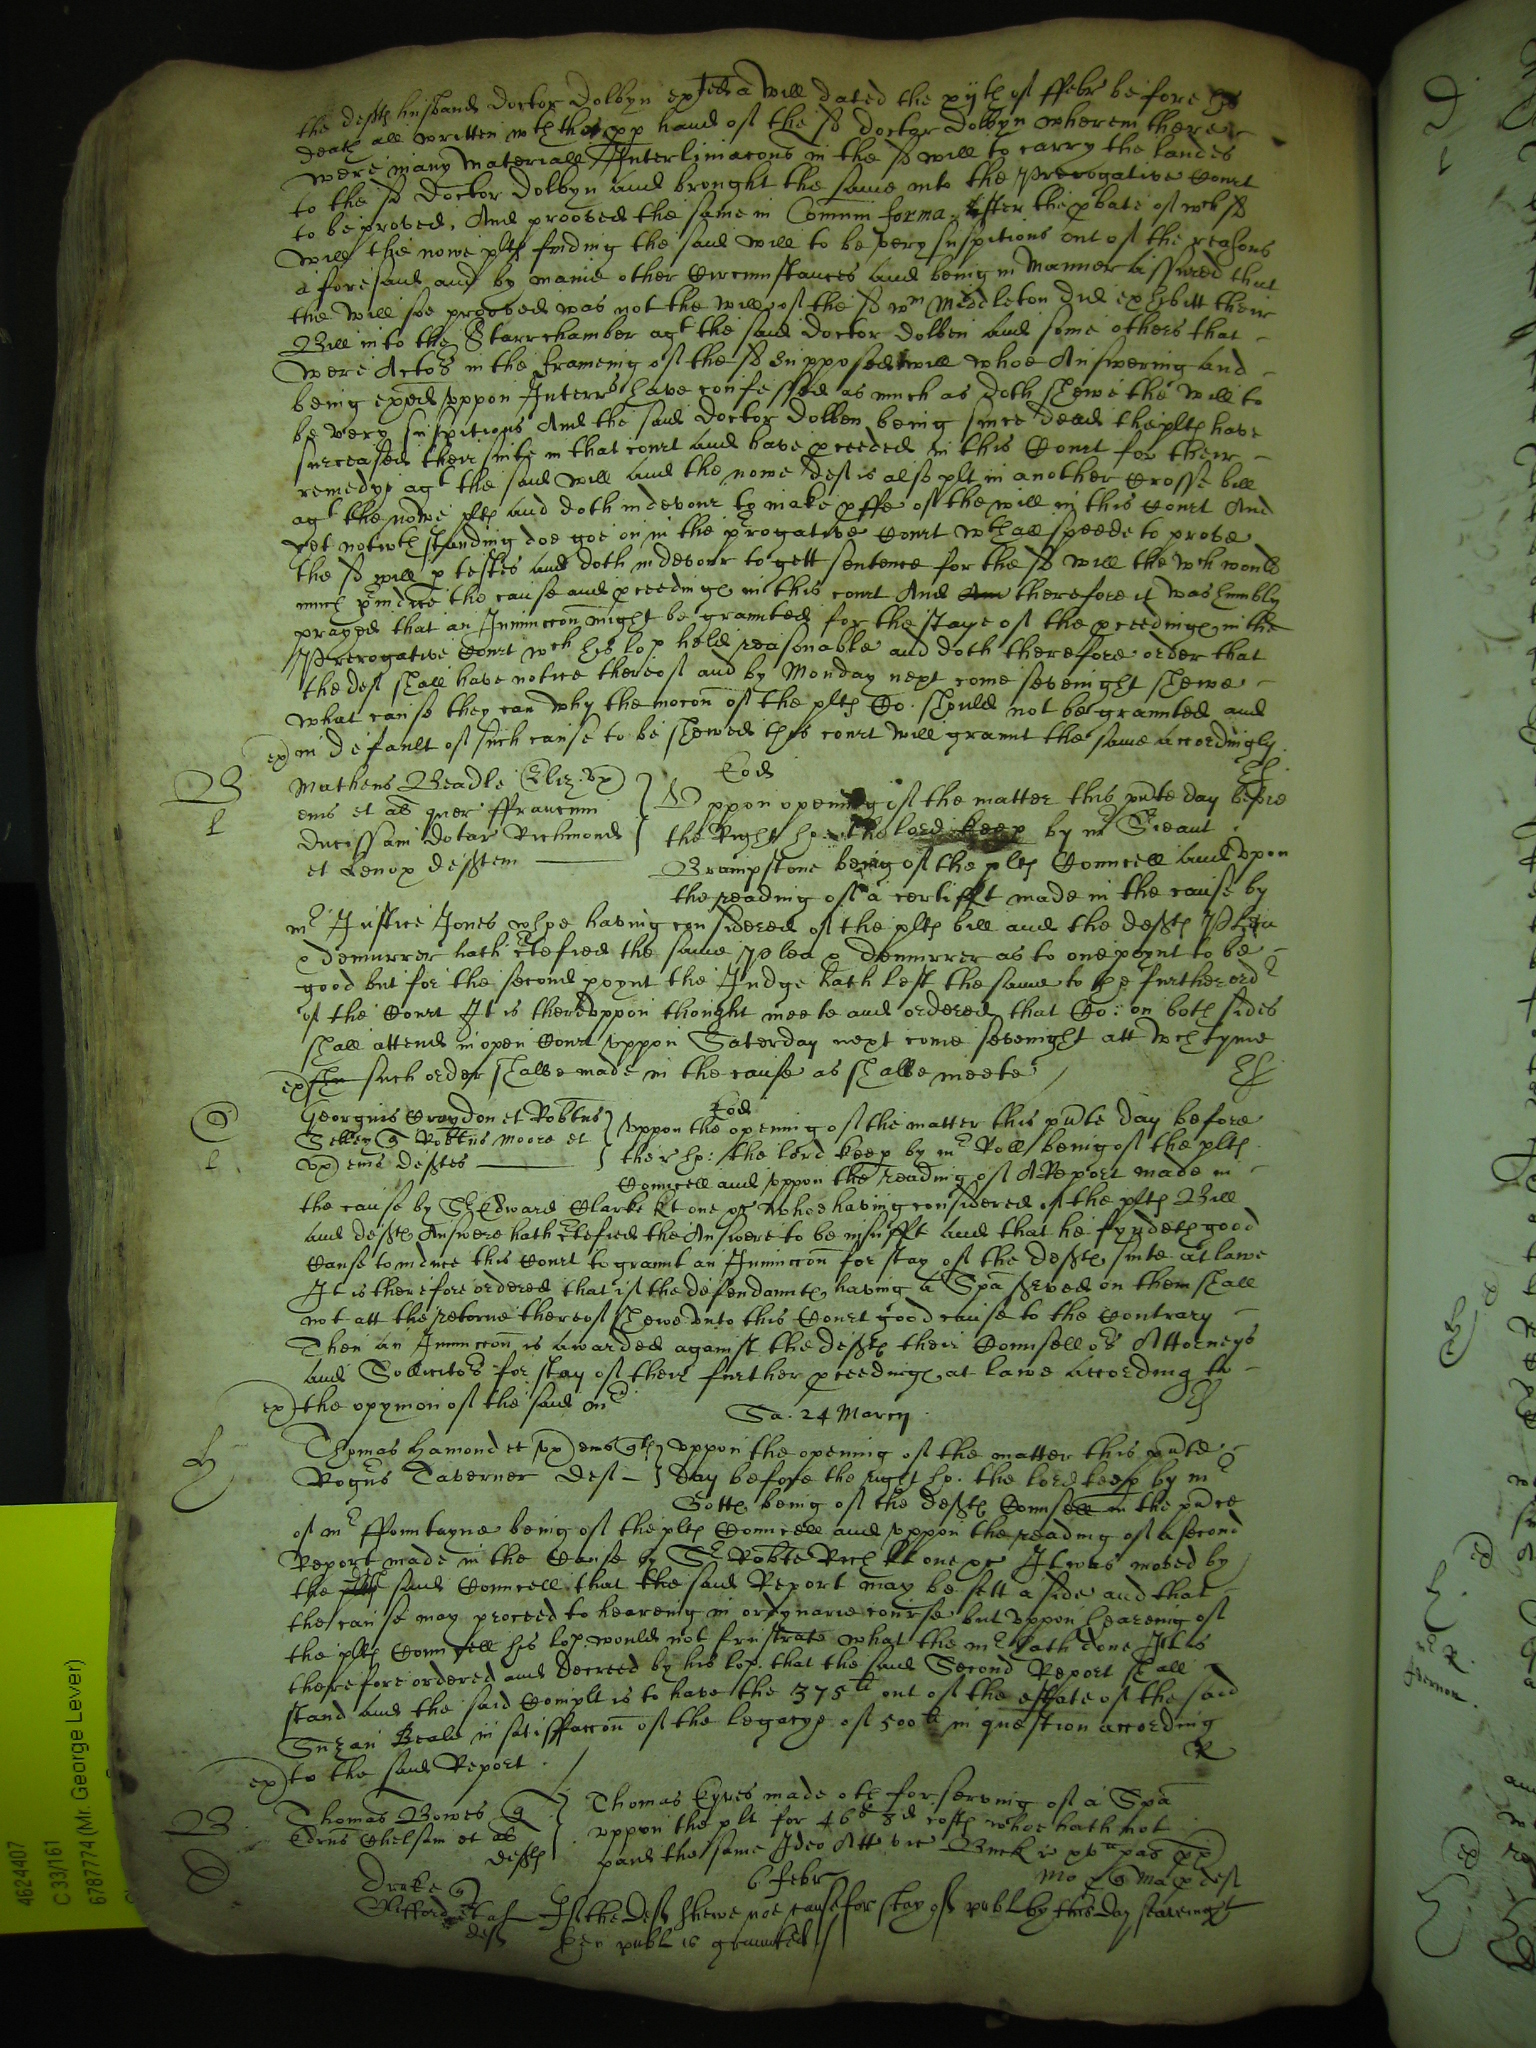 the deftes husband Doctor Dolbyn exhibited a will dated the xijth of ffebr before his
death all written wth the xx hand of the sd doctor Dolbyn wherein there
were many materiall Interliniacons in the sd will to carry the landes
to the sd doctor Dolbyn and brought the same into the Prerogative Court
to be proved, And prooved the same in Comuni forma. After the pbate of wch sd
will the nowe pltes finding the said will to be very suspitious out of the reasons
aforesaid and by manie other Circumstances and being in manner assured that
the will soe prooved was not the will of the sd wm Middleton did exhibitt their
Bill into the Starrchamber agt the said doctor Dolben and some others that
were Actors in the frameing of the sd supposed will whoe Answering and
being exed uppon Interrs have confessed as much as doth shewe the will to
be very suspitious And the said doctor Dolben being since dead the pltes have
surceased their suite in that court and have pceeded in this Court for their
remedy agt the said will and the nowe deft is also plt in another Crosse bill
agt the nowe pltes and doth indevour to make pffe of the will in this Court And
yet notwthstanding doe goe on in the progative Court wth all speede to prove
the sd will p testes and doth indevour to gett sentence for the sd will the wch would
much piudice the cause and pceedinges in this court And therefore it was humbly
prayed that an Iniunccon might be graunted for the staye of the pceedinges in the
Prerogative Court wch his lop held reasonable and doth therefore order that
the deft shall have notice thereof and by Monday next come sevenight shewe
what cause they can why the mocon of the pltes Co. should not be graunted and
ex in default of such cause to be shewed this court will graunt the same accordingly.
B
l
Matheus Beadle Eliz. ux
eius et al quer ffrancim
Ducissam dotar Richmond
et Lenox defftem
Eod
Uppon opening of the matter this pnte day before
the Right ho: the lord keep by mr Sieant
Brampstone being of the pltes Councell and upon
the reading of a certifft made in the cause by
mr Justice Jones whoe having considered of the pltes bill and the defftes Plea
& demurrer hath ctefied the same plea & demurrer as to one poynt to be
good but for the second poynt the Judge hath left the same to the further ordr
of the Court It is thereuppon thought meete and ordered that Co: on both sides
shall attend in open Court uppon Saterday next come sevenight att wch tyme
ex such order shalbe made in the cause as shalbe meete
Georgius Croydon et Robtus
Robtus Moore et
ux eius defftes
Eod
Uppon the opening of the matter this pnte day before
the r ho: the lord keep by mr Roll being of the pltes
Councell and uppon the reading of A Report made in
the cause by Sr Edward Clarke kt one &c whoe having considered of the pltes Bill
and defftes Answere hath ctefied the Answere to be insufft and that he fyndeth good
Cause to induce this Court to graunt an Iniunccon for stay of the defftes suite at lawe
It is therefore ordered that if the defendauntes having a Spa served on them shall
not att the retorne thereof shewe unto this Court good cause to the Contrary
Then an Iniunccon is awarded against the defftes their Counsellors Attorneys
and Sollicitors for stay of their further pceedinges at lawe according to
ex the opynion of the said mr
Sa. 24 March
Thomas Hamond et ux eius qtes
Rogus Taverner deft
Uppon the opening of the matter this pnte
day before the right ho. the lord keep by mr
being of the defftes Counsell in the pnce
of mr ffountayne being of the pltes Councell and uppon the reading of a second
Report made in the Cause by Sr Robte Rich kt one &c It was moved by
the said Councell that the said Report may be sett aside and that
the cause may proceed to heareing in ordynarie course but uppon heareing of
the pltes Councell his lop. would not frustrate what the mr hath done It is
therefore ordered and decreed by his lop. that the said Second Report shall
stand and the said Complt is to have the 375li out of the estate of the said
Suzan Beale in satisfaccon of the legacye of 500li in question according
ex to the said Report.
B
Thomas Bowes q
Edrus Chelsam et al
defftes
Thomas Eyres made oth for serving of a Spa
uppon the plt for 46s 8d costes whoe hath not
paid the same Ideo Att vic Buck
D
6 febr
Drake q
Clifford et al
deft
If the deft shewe noe cause for stay of publ by this day seavenight
then publ is graunted
4624407
C 33/161
6787774 (Mr. George Lever)